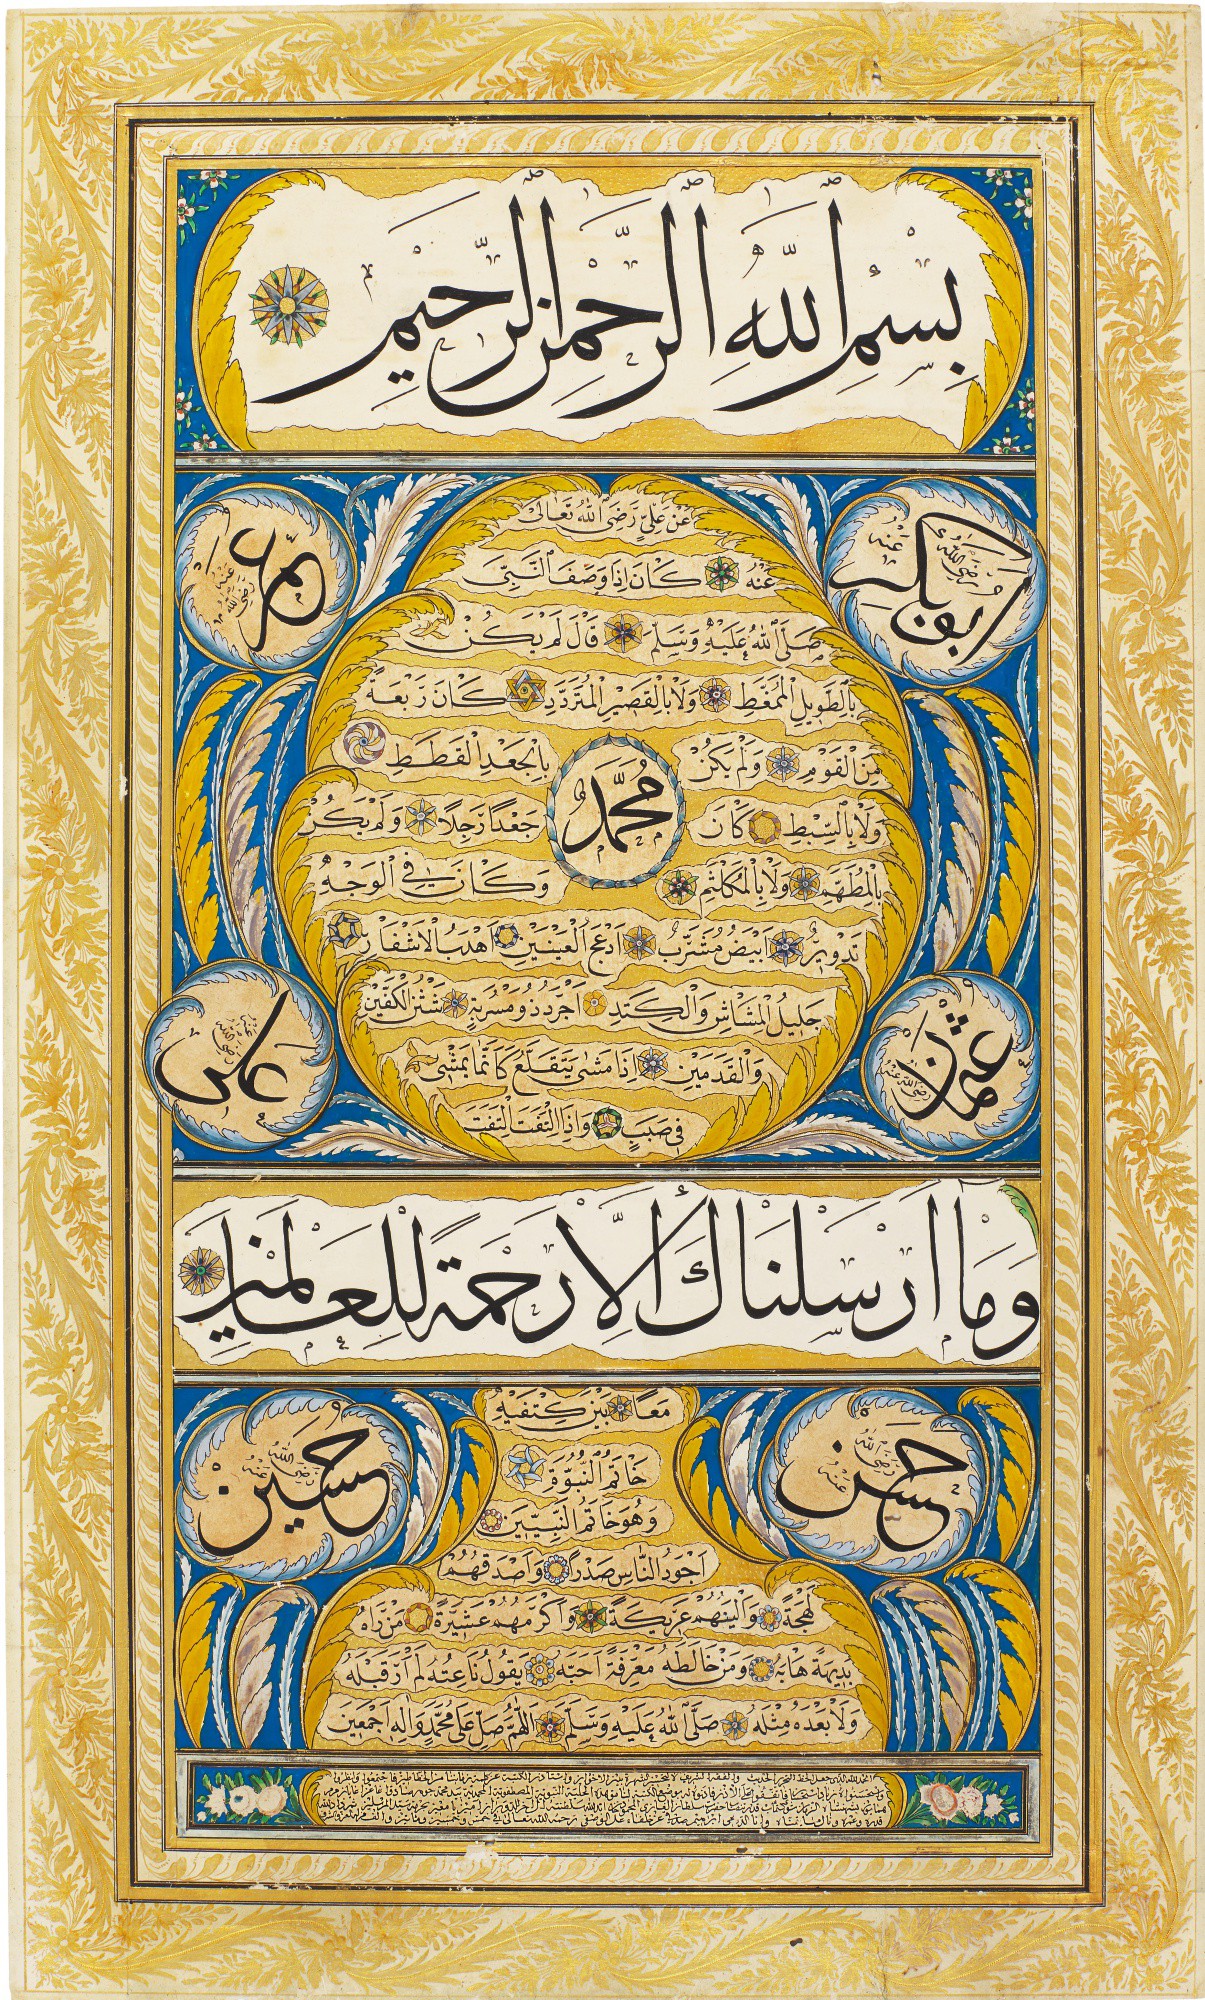 بِسْمِ اللّٰهِ الرَّحْمٰنِ الرَّحِيمِ
ابوبكر رضى الله عنه
عمر رضى الله عنه
عَنْ عَلِيٍّ رَضِىَ اللّٰهُ تَعَالَى
عَنْهُ كَانَ اِذَا وَصَفَ النَّبِىَّ
صَلَّى اللّٰهُ عَلَيْهِ وَسَلَّمَ قَالَ لَمْ يَكُنْ
بِالطَّوِيلِ الْمُمَغَّطِ وَلَا بِالْقَصِيرِ الْمُتَرَدِّدِ كَانَ رَبْعَةً
مِنَ الْقَوْمِ وَلَمْ يَكُنْ بِالْجَعْدِ الْقَطَطِ
مُحَمَّد
وَلَا بِالسَّبْطِ كَانَ جَعْدًا رَجِلًا وَلَمْ يَكُنْ
بِالْمُطَهَّمِ وَلَا بِالْمُكَلْثَمِ وَكَانَ فِى الْوَجْهِ
تَدْوِيرٌ اَبْيَضُ مُشَرَّبٌ اَدْعَجُ الْعَيْنَيْنِ اَهْدَبُ الْاَشْفَارِ
جَلِيلُ الْمُشَاشِ وَالْكَتِدِ اَجْرَدُ ذُو مَسْرُبَةٍ شَثْنُ الْكَفَّيْنِ
وَالْقَدَمَيْنِ اِذَا مَشٰى يَتَقَلَّعُ كَاَنَّمَا يَمْشِى
فِى صَبَبٍ وَاِذَا الْتَفَتَ الْتَفَتَ
عثمان رضى الله عنه
على رضى الله عنه
وَمَا اَرْسَلْنَاكَ اِلَّا رَحْمَةً لِلْعَالَمِينَ
حسن رضى الله عنه
حسين رضى الله عنه
مَعًا بَيْنَ كَتِفَيْهِ
خَاتَمُ النُّبُوَّةِ
وَهُوَ خَاتَمُ النَّبِيِّينَ
اَجْوَدُ النَّاسِ صَدْرًا وَاَصْدَقُهُمْ
لَهْجَةً وَاَلْيَنُهُمْ عَرِيكَةً وَاَكْرَمُهُمْ عَشِيرَةً مَنْ رَاٰهُ
بَدِيهَةً هَابَهُ وَمَنْ خَالَطَهُ مَعْرِفَةً اَحَبَّهُ يَقُولُ نَاعِتُهُ لَمْ اَرَ قَبْلَهُ
وَلَا بَعْدَهُ مِثْلَهُ صَلَّى اللّٰهُ عَلَيْهِ وَسَلَّمَ اَللّٰهُمَّ صَلِّ عَلٰى مُحَمَّدٍ وَاٰلِهِ اَجْمَعِينَ